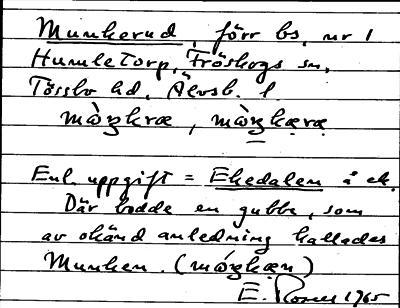 Munkerud, förr bs, nr 1
Humletorp, Fröskogs sn,
Tössbo hd, Älvsb. l.
Enl. uppgift = Ekedalen å ek.
Där bodde en gubbe, som
av okänd anledning kallades
Munken.
E. 1965